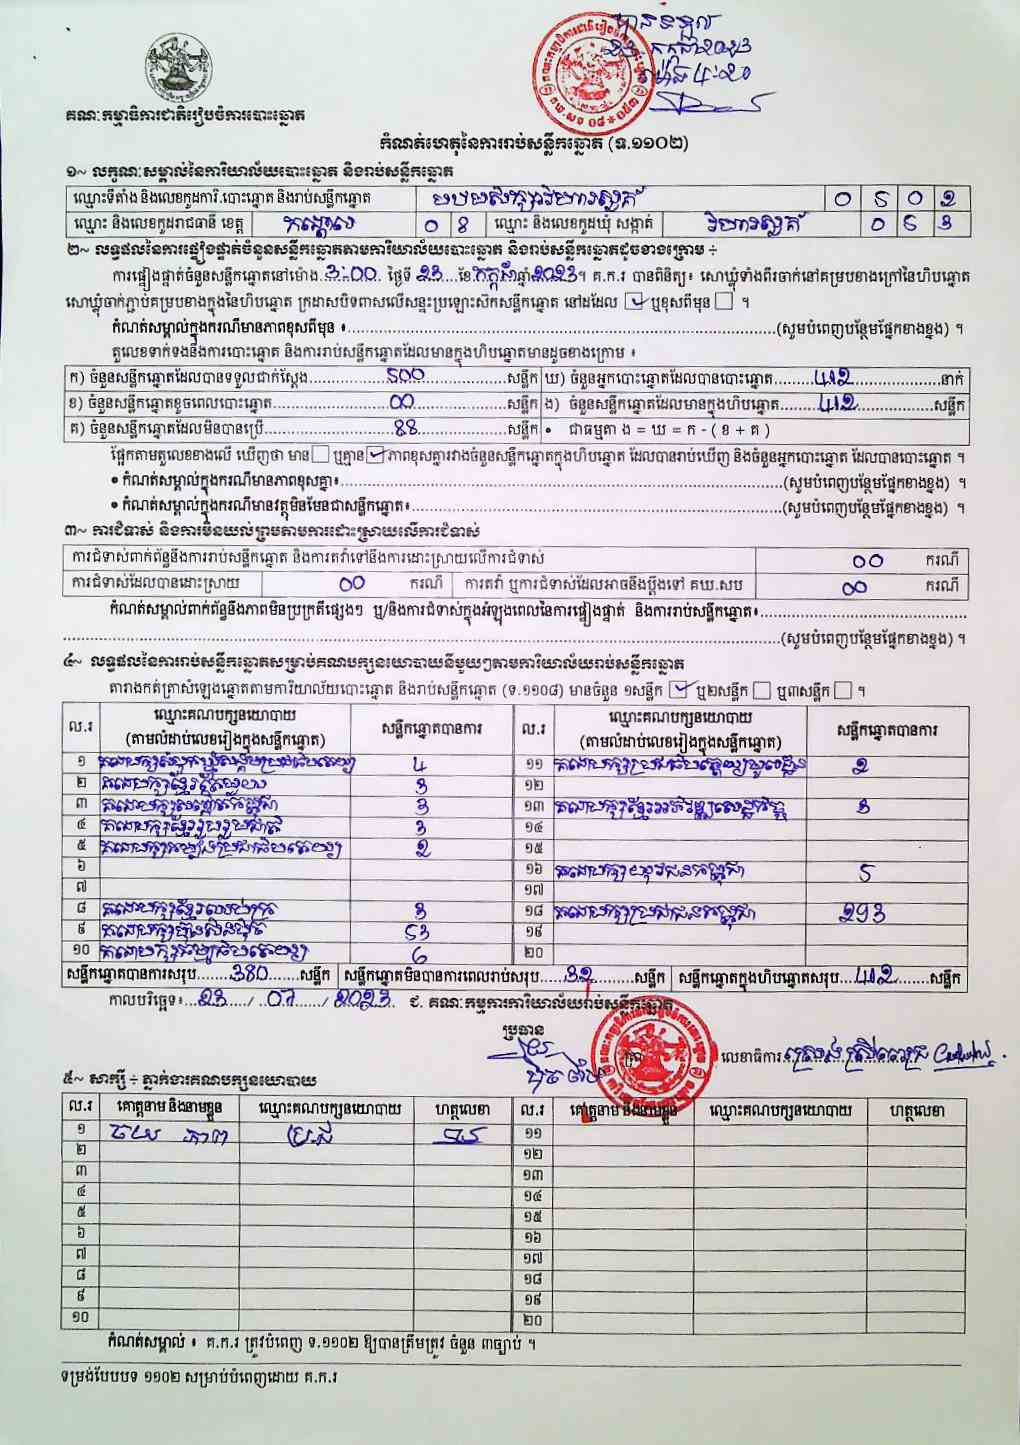 គណៈកម្មាធិការជាតិរៀបចំការបោះឆ្នោត
កំណត់ហេតុនៃការរាប់សន្លឹកឆ្នោត (ទ.១១០២)
១~ លក្ខណៈសម្គាល់នៃការិយាល័យបោះឆ្នោត និងរាប់សន្លឹកឆ្នោត
ឈ្មោះទីតាំង និងលេខកូដការិ.បោះឆ្នោត និងរាប់សន្លឹកឆ្នោត
ឈ្មោះ និងលេខកូដរាជធានី ខេត្ត កណ្តាល ០ ៨ ឈ្មោះ និងលេខកូដឃុំ សង្កាត់ វិហារសួគ៌
២~ លទ្ធផលនៃការផ្ទៀងផ្ទាត់ចំនួនសន្លឹកឆ្នោតតាមការិយាល័យបោះឆ្នោត និងរាប់សន្លឹកឆ្នោតដូចខាងក្រោម ÷
ការផ្ទៀងផ្ទាត់ចំនួនសន្លឹកឆ្នោតនៅម៉ោង 3:00 ថ្ងៃទី 23 ខែ កក្កដា ឆ្នាំ 2023។ គ.ក.រ បានពិនិត្យ៖ សោឃ្លុំទាំងពីរចាក់នៅគម្របខាងក្រៅនៃហិបឆ្នោត
សោឃ្លុំចាក់ភ្ជាប់គម្របខាងក្នុងនៃហិបឆ្នោត ក្រដាសបិទពាសលើសន្ទះប្រឡោះស៊កសន្លឹកឆ្នោត នៅដដែល ឬខុសពីមុន ។
កំណត់សម្គាល់ក្នុងករណីមានភាពខុសពីមុន ៖ (សូមបំពេញបន្ថែមផ្នែកខាងខ្នង) ។
តួលេខទាក់ទងនឹងការបោះឆ្នោត និងការរាប់សន្លឹកឆ្នោតដែលមានក្នុងហិបឆ្នោតមានដូចខាងក្រោម ៖
ក) ចំនួនសន្លឹកឆ្នោតដែលបានទទួលជាក់ស្តែង 500 សន្លឹក ឃ) ចំនួនអ្នកបោះឆ្នោតដែលបានបោះឆ្នោត 412 នាក់
ខ) ចំនួនសន្លឹកឆ្នោតខូចពេលបោះឆ្នោត 00 សន្លឹក ង) ចំនួនសន្លឹកឆ្នោតដែលមានក្នុងហិបឆ្នោត 412 សន្លឹក
គ) ចំនួនសន្លឹកឆ្នោតដែលមិនបានប្រើ 88 សន្លឹក • ជាធម្មតា ង = ឃ = ក - ( ខ + គ )
ផ្អែកតាមតួលេខខាងលើ ឃើញថា មាន ឬគ្មាន ភាពខុសគ្នារវាងចំនួនសន្លឹកឆ្នោតក្នុងហិបឆ្នោត ដែលបានរាប់ឃើញ និងចំនួនអ្នកបោះឆ្នោត ដែលបានបោះឆ្នោត ។
• កំណត់សម្គាល់ក្នុងករណីមានភាពខុសគ្នា៖ (សូមបំពេញបន្ថែមផ្នែកខាងខ្នង) ។
• កំណត់សម្គាល់ក្នុងករណីមានវត្ថុមិនមែនជាសន្លឹកឆ្នោត៖ (សូមបំពេញបន្ថែមផ្នែកខាងខ្នង) ។
៣~ ការជំទាស់ និងការមិនយល់ព្រមតាមការដោះស្រាយលើការជំទាស់
ការជំទាស់ពាក់ព័ន្ធនឹងការរាប់សន្លឹកឆ្នោត និងការតវ៉ាទៅនឹងការដោះស្រាយលើការជំទាស់ 00 ករណី
ការជំទាស់ដែលបានដោះស្រាយ 00 ករណី ការតវ៉ា ឬការជំទាស់ដែលអាចនឹងប្តឹងទៅ គឃ.សប 00 ករណី
កំណត់សម្គាល់ពាក់ព័ន្ធនឹងភាពមិនប្រក្រតីផ្សេងៗ ឬ/និងការជំទាស់ក្នុងអំឡុងពេលនៃការផ្ទៀងផ្ទាត់ និងការរាប់សន្លឹកឆ្នោត៖
(សូមបំពេញបន្ថែមផ្នែកខាងខ្នង) ។
៤~ លទ្ធផលនៃការរាប់សន្លឹកឆ្នោតសម្រាប់គណបក្សនយោបាយនីមួយៗតាមការិយាល័យរាប់សន្លឹកឆ្នោត
តារាងកត់ត្រាសំឡេងឆ្នោតតាមការិយាល័យបោះឆ្នោត និងរាប់សន្លឹកឆ្នោត (ទ.១១០៨) មានចំនួន ១សន្លឹក ឬ២សន្លឹក ឬ៣សន្លឹក ។
ល.រ ឈ្មោះគណបក្សនយោបាយ (តាមលំដាប់លេខរៀងក្នុងសន្លឹកឆ្នោត) សន្លឹកឆ្នោតបានការ ល.រ ឈ្មោះគណបក្សនយោបាយ (តាមលំដាប់លេខរៀងក្នុងសន្លឹកឆ្នោត) សន្លឹកឆ្នោតបានការ
១ 4 ១១ 2
២ 3 ១២
៣ 3 ១៣ គណបក្សខ្មែរអភិវឌ្ឍន៍សេដ្ឋកិច្ច 3
៤ គណបក្សខ្មែររួបរួមជាតិ 3 ១៤
៥ 2 ១៥
៦ ១៦ គណបក្សយុវជនកម្ពុជា 5
៧ ១៧
៨ 3 ១៨ គណបក្សប្រជាជនកម្ពុជា 293
៩ គណបក្សហ៊្វុនស៊ិនប៉ិច 53 ១៩
១០ 6 ២០
សន្លឹកឆ្នោតបានការសរុប 380 សន្លឹក សន្លឹកឆ្នោតមិនបានការពេលរាប់សរុប 32 សន្លឹក សន្លឹកឆ្នោតក្នុងហិបឆ្នោតសរុប 412 សន្លឹក
កាលបរិច្ឆេទ៖ 23 / 07 / 2023 ជ. គណៈកម្មការការិយាល័យរាប់សន្លឹកឆ្នោត
ប្រធាន
លេខាធិការ
៥~ សាក្សី ÷ ភ្នាក់ងារគណបក្សនយោបាយ
ល.រ គោត្តនាម និងនាមខ្លួន ឈ្មោះគណបក្សនយោបាយ ហត្ថលេខា ល.រ គោត្តនាម និងនាមខ្លួន ឈ្មោះគណបក្សនយោបាយ ហត្ថលេខា
១ ១១
២ ១២
៣ ១៣
៤ ១៤
៥ ១៥
៦ ១៦
៧ ១៧
៨ ១៨
៩ ១៩
១០ ២០
កំណត់សម្គាល់ ៖ គ.ក.រ ត្រូវបំពេញ ទ.១១០២ ឱ្យបានត្រឹមត្រូវ ចំនួន ៣ច្បាប់ ។
ទម្រង់បែបបទ ១១០២ សម្រាប់បំពេញដោយ គ.ក.រ